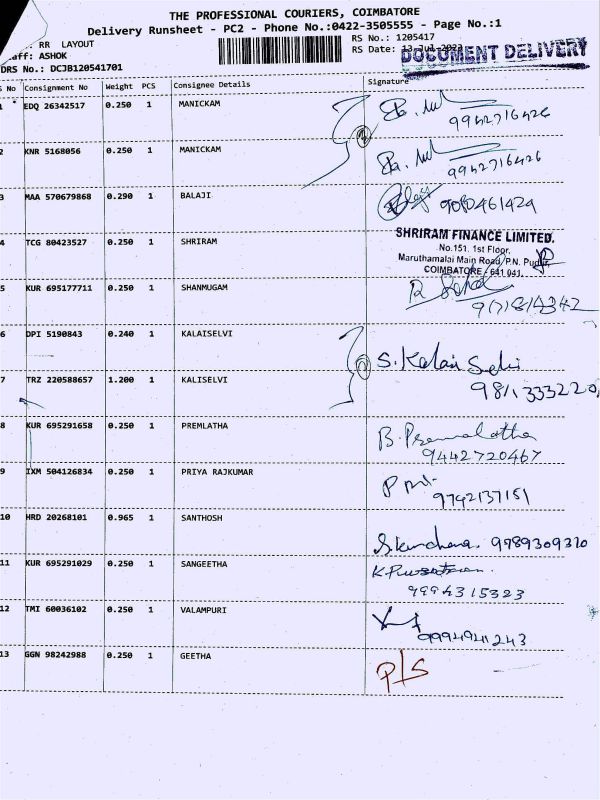 THE PROFESSIONAL COURIERS, COIMBATORE
Delivery Runsheet - PC2 - Phone No.:0422-3505555 - Page No.:1
RR LAYOUT
RS No.: 1205417
aff: ASHOK
RS Date: 13-Jul-2023
DOCUMENT DELIVERY
DRS No.: DCJB120541701
S No Consignment No Weight PCS Consignee Details Signature
1 * EDQ 26342517 0.250 1 MANICKAM
9942716426
2 KNR 5168056 0.250 1 MANICKAM
9942716426
3 MAA 570679868 0.290 1 BALAJI
9080461424
4 TCG 80423527 0.250 1 SHRIRAM
SHRIRAM FINANCE LIMITED.
No.151, 1st Floor,
Maruthamalai Main Road, P.N. Pudur,
COIMBATORE - 641 041.
5 KUR 695177711 0.250 1 SHANMUGAM
6 DPI 5190843 0.240 1 KALAISELVI
S. Kalai Selvi
7 TRZ 220588657 1.200 1 KALISELVI
8 KUR 695291658 0.250 1 PREMLATHA
B. Premalatha
9442720467
9 IXM 504126834 0.250 1 PRIYA RAJKUMAR
9742137151
10 HRD 20268101 0.965 1 SANTHOSH
9789309310
11 KUR 695291029 0.250 1 SANGEETHA
9994315323
12 TMI 60036102 0.250 1 VALAMPURI
9994941243
13 GGN 98242988 0.250 1 GEETHA
P/S